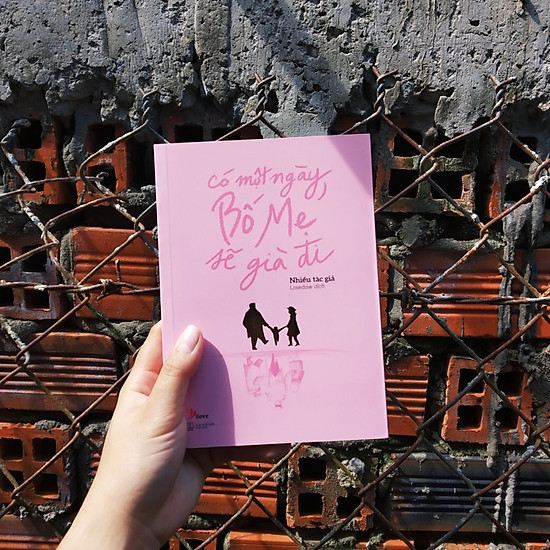 Có một ngày,
Bố Mẹ
sẽ già đi
Nhiều tác giả
Losedow dịch
love